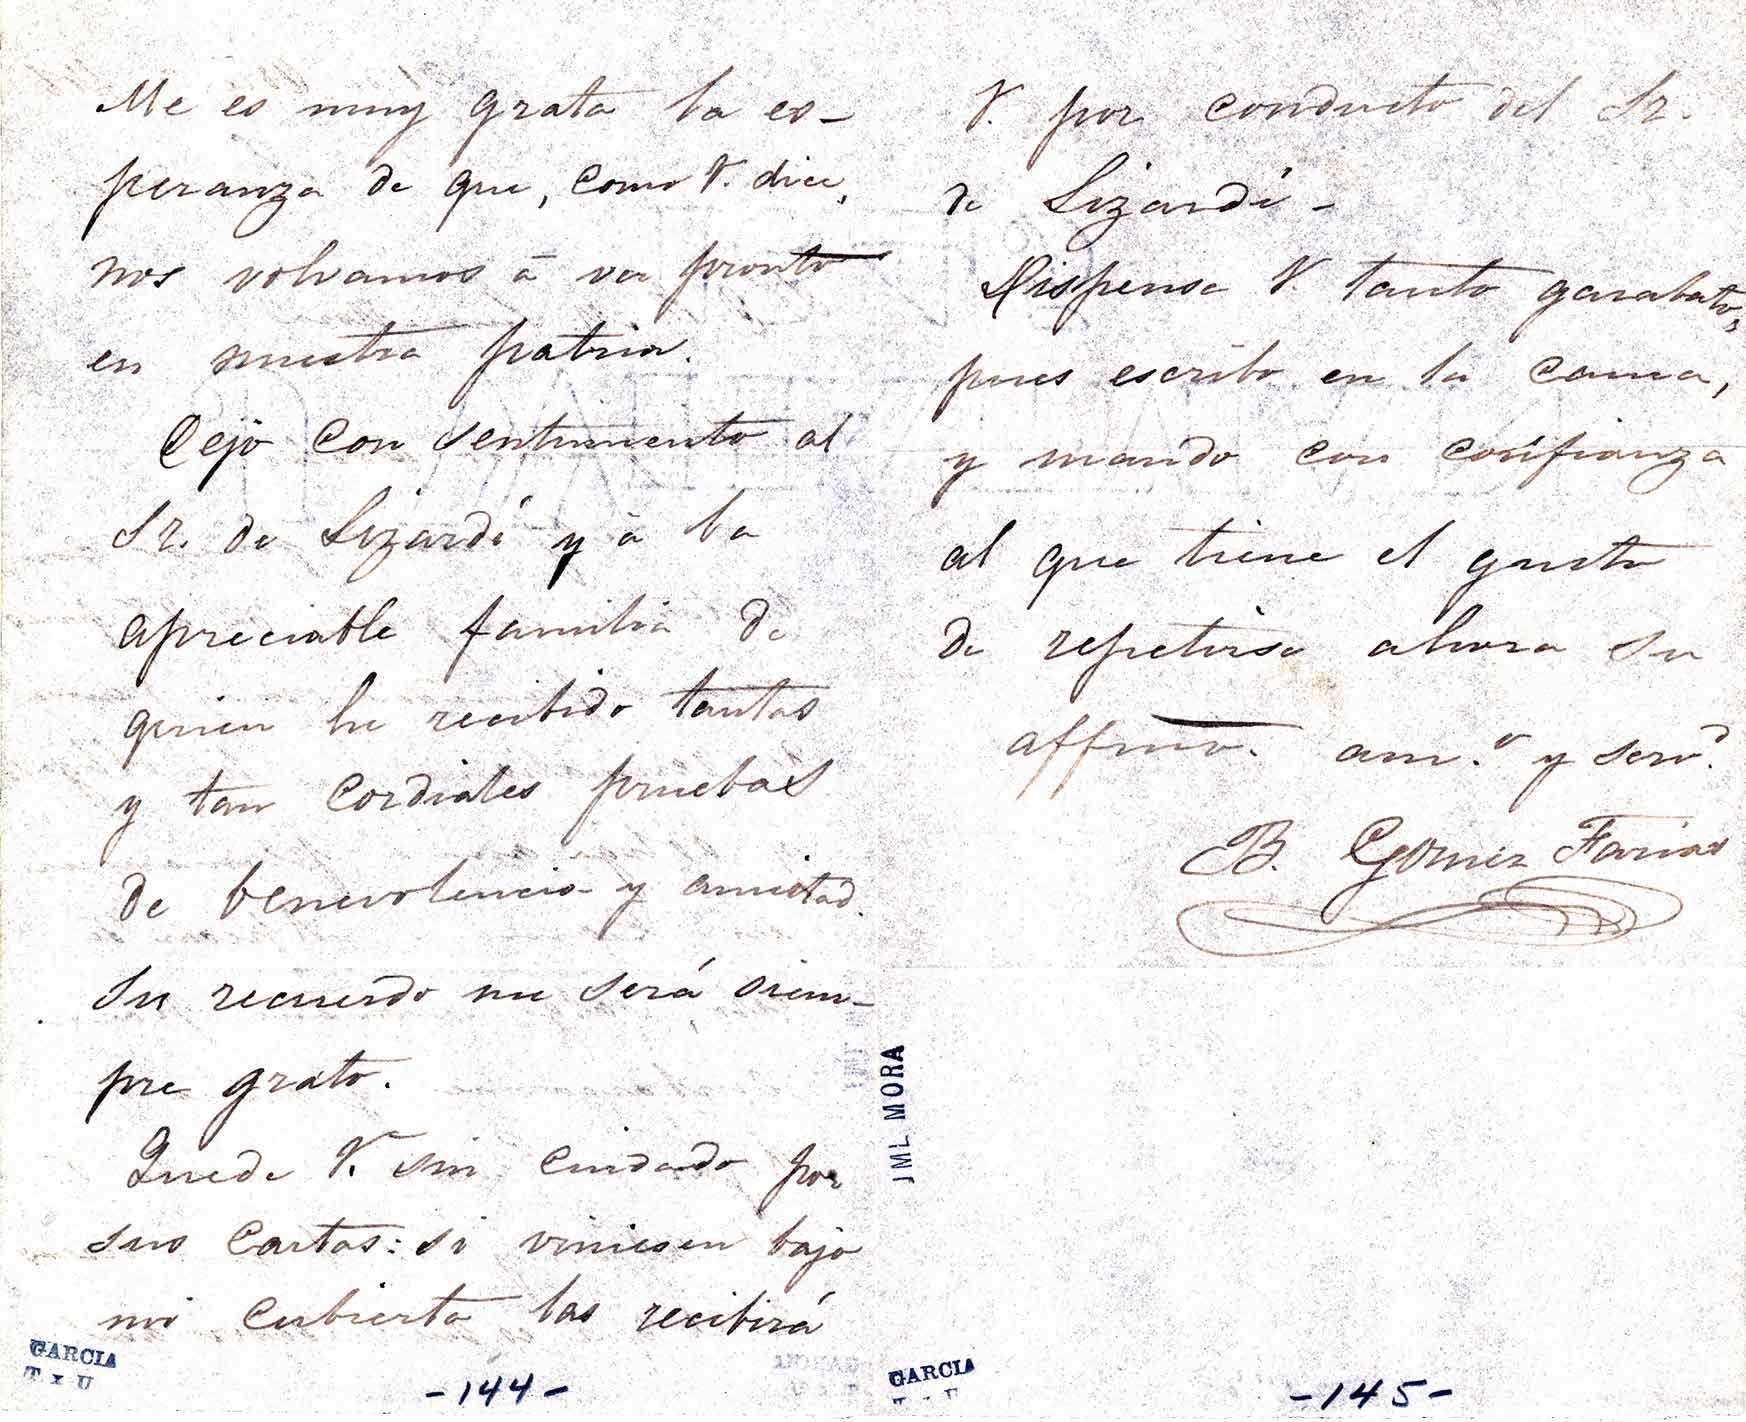 Me es muy grata la es-
peranza de que, como V. dice,
nos volvamos á ver pronto
en nuestra patria.
Dejo con sentimiento al
Sr. de Lizardi y á la
apreciable familia de
quien he recibido tantas
y tan cordiales pruebas
de benevolencia y amistad.
Su recuerdo me será siem-
pre grato.
Quede V. sin cuidado por
sus cartas: si viniesen bajo
mi cubierta las recibirá
GARCIA
T x U
-144-
V. por conducto del Sr.
de Lizardi -
Dispense V. tanto garabato,
pues escribo en la cama,
y mando con confianza
al que tiene el gusto
de repetirse ahora su
affmo. am.º y serv.r
B. Gomez Farias
JML MORA
GARCIA
-145-